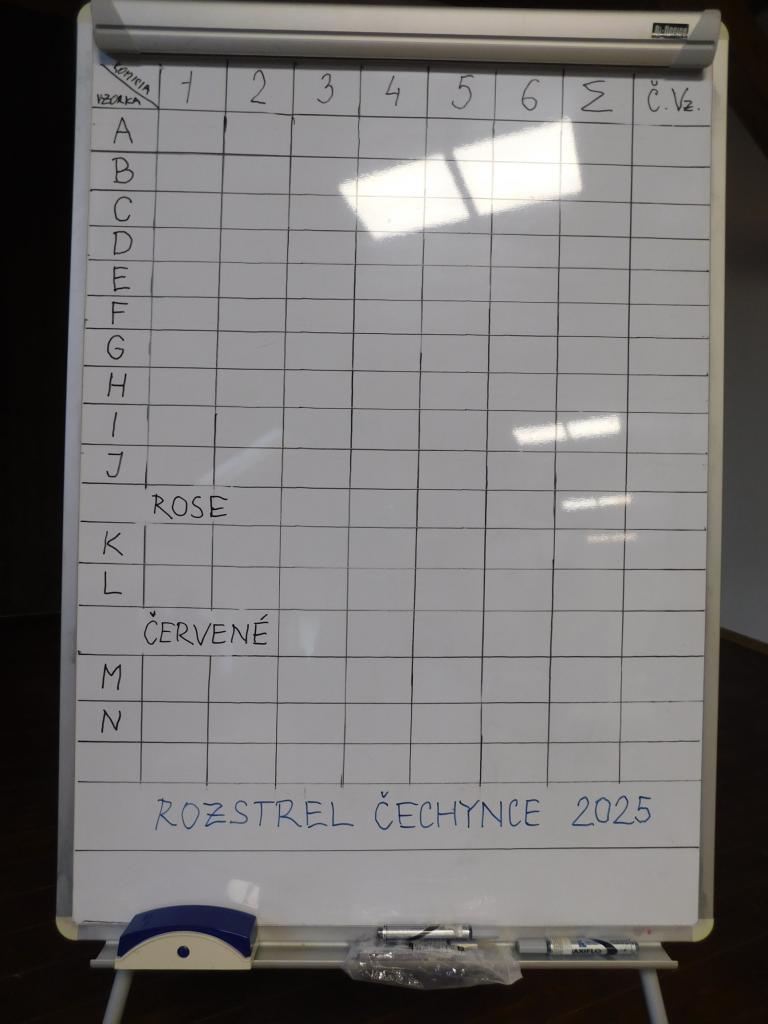 KOMISIA
VZORKA 1 2 3 4 5 6 Σ Č.Vz.
A
B
C
D
E
F
G
H
I
J
ROSE
K
L
ČERVENÉ
M
N
ROZSTREL ČECHYNCE 2025